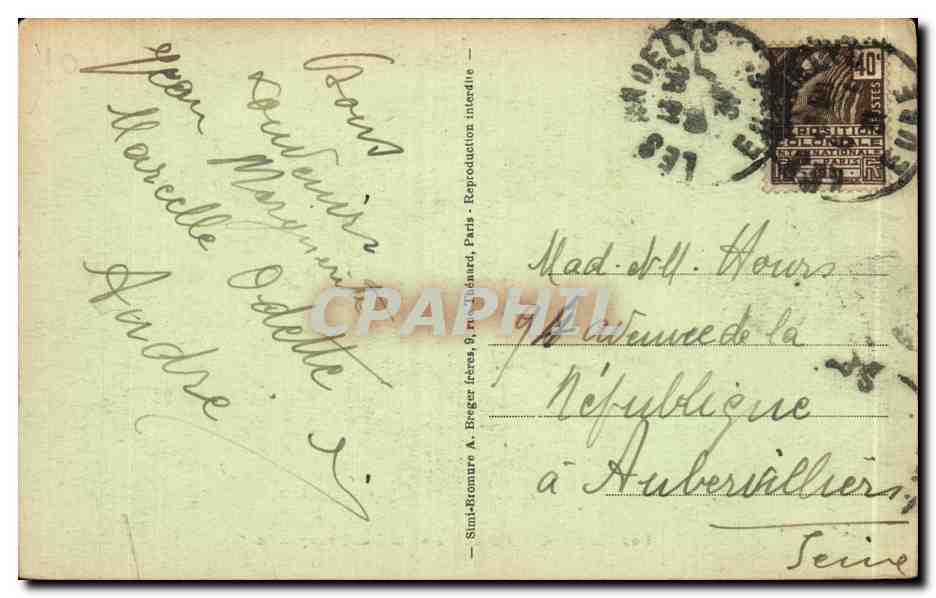 Bons
souvenirs
Marguerite
Jean
Marcelle Odette
André
— Simi-Bromure A. Breger frères, 9, rue Thénard, Paris - Reproduction interdite —
LES ANDELYS
EURE
40c
EXPOSITION
COLONIALE
INTERNATIONALE
PARIS
Mad. Hours
avenue de la
République
à Aubervilliers
Seine
CPAPHIL